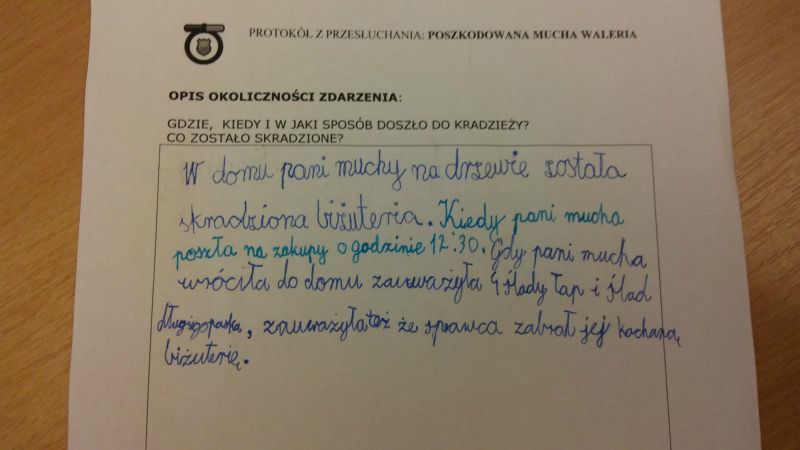 PROTOKÓŁ Z PRZESŁUCHANIA: POSZKODOWANA MUCHA WALERIA
OPIS OKOLICZNOŚCI ZDARZENIA:
GDZIE, KIEDY I W JAKI SPOSÓB DOSZŁO DO KRADZIEŻY?
CO ZOSTAŁO SKRADZIONE?
W domu pani muchy na drzewie została
skradziona biżuteria. Kiedy pani mucha
poszła na zakupy o godzinie 12:30. Gdy pani mucha
wróciła do domu zauważyła 4 ślady łap i ślad
zauważyła też że sprawca zabrał jej kochaną
biżuterię.